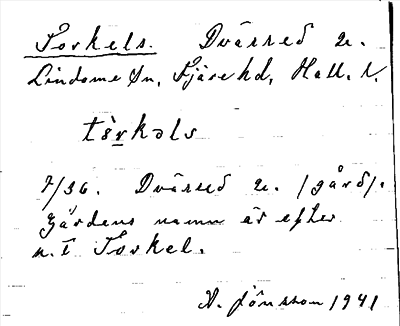 Torkels. Dvärred 2.
Lindome sn, Fjäre hd, Hall. l.
tòrkəls
7/36. Dvärred 2. /gård/.
Gårdens namn är efter
n. i Torkel.
A. Jönsson 1941